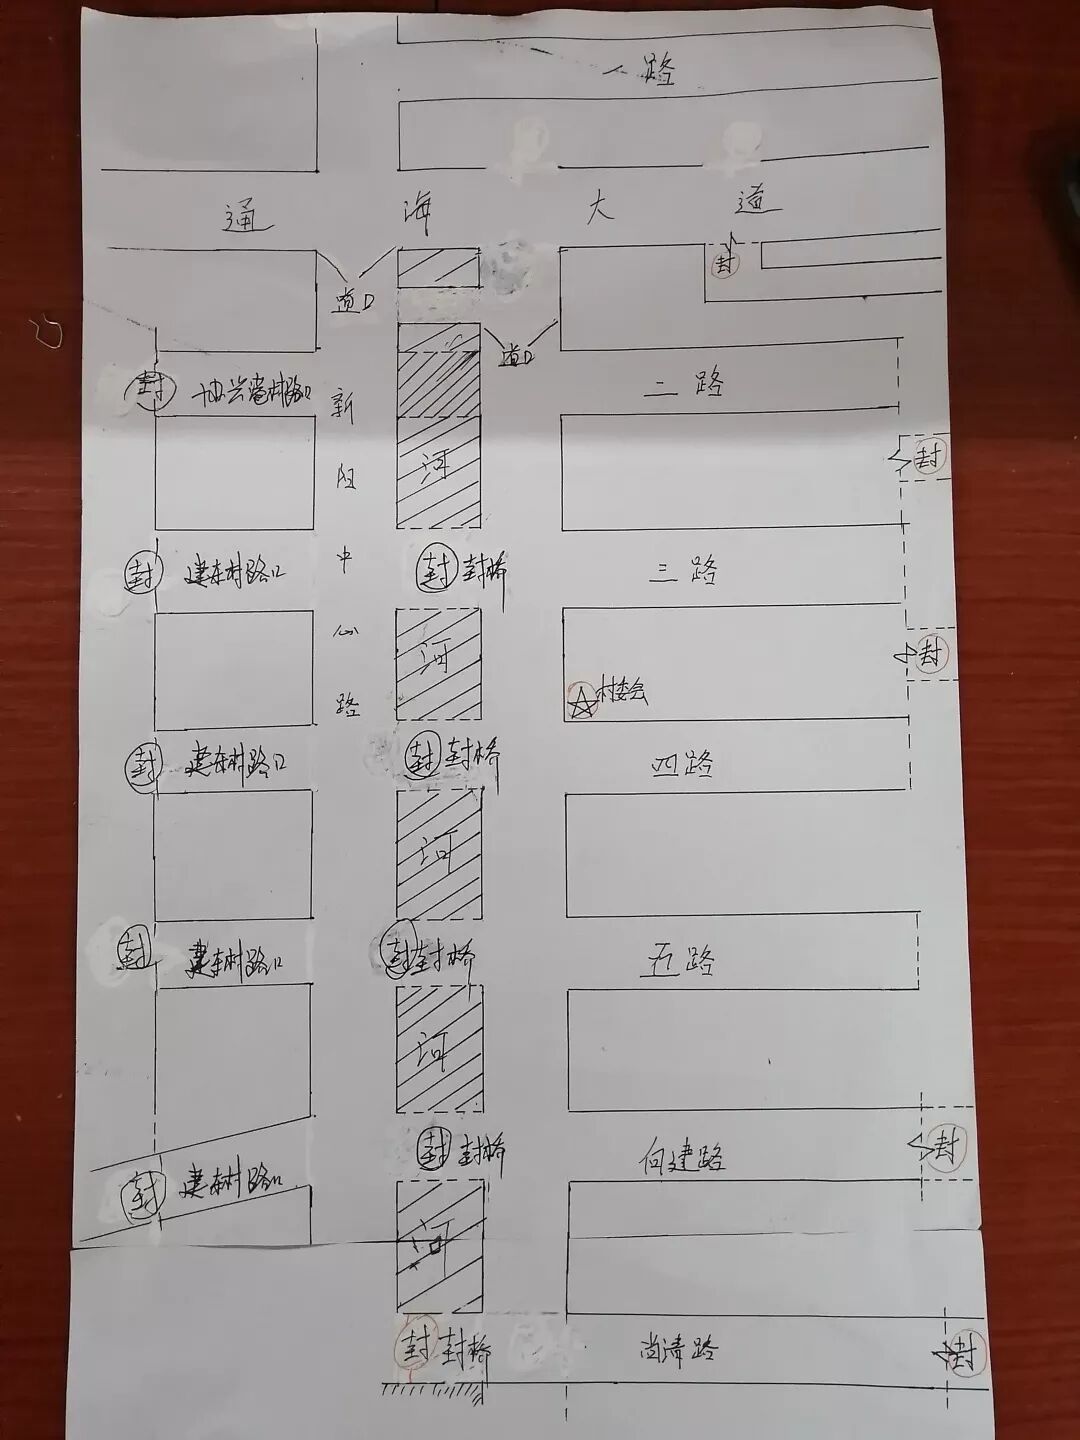 一路
通海大道
封
道口
道口
封 协兴港村路口
新阳中心路
二路
河
封
封 建东村路口
封 封桥
三路
河
封
村委会
封 建东村路口
封 封桥
四路
河
封 建东村路口
封 封桥
五路
河
封 建东村路口
封 封桥
向建路
封
河
封 封桥
尚清路
封